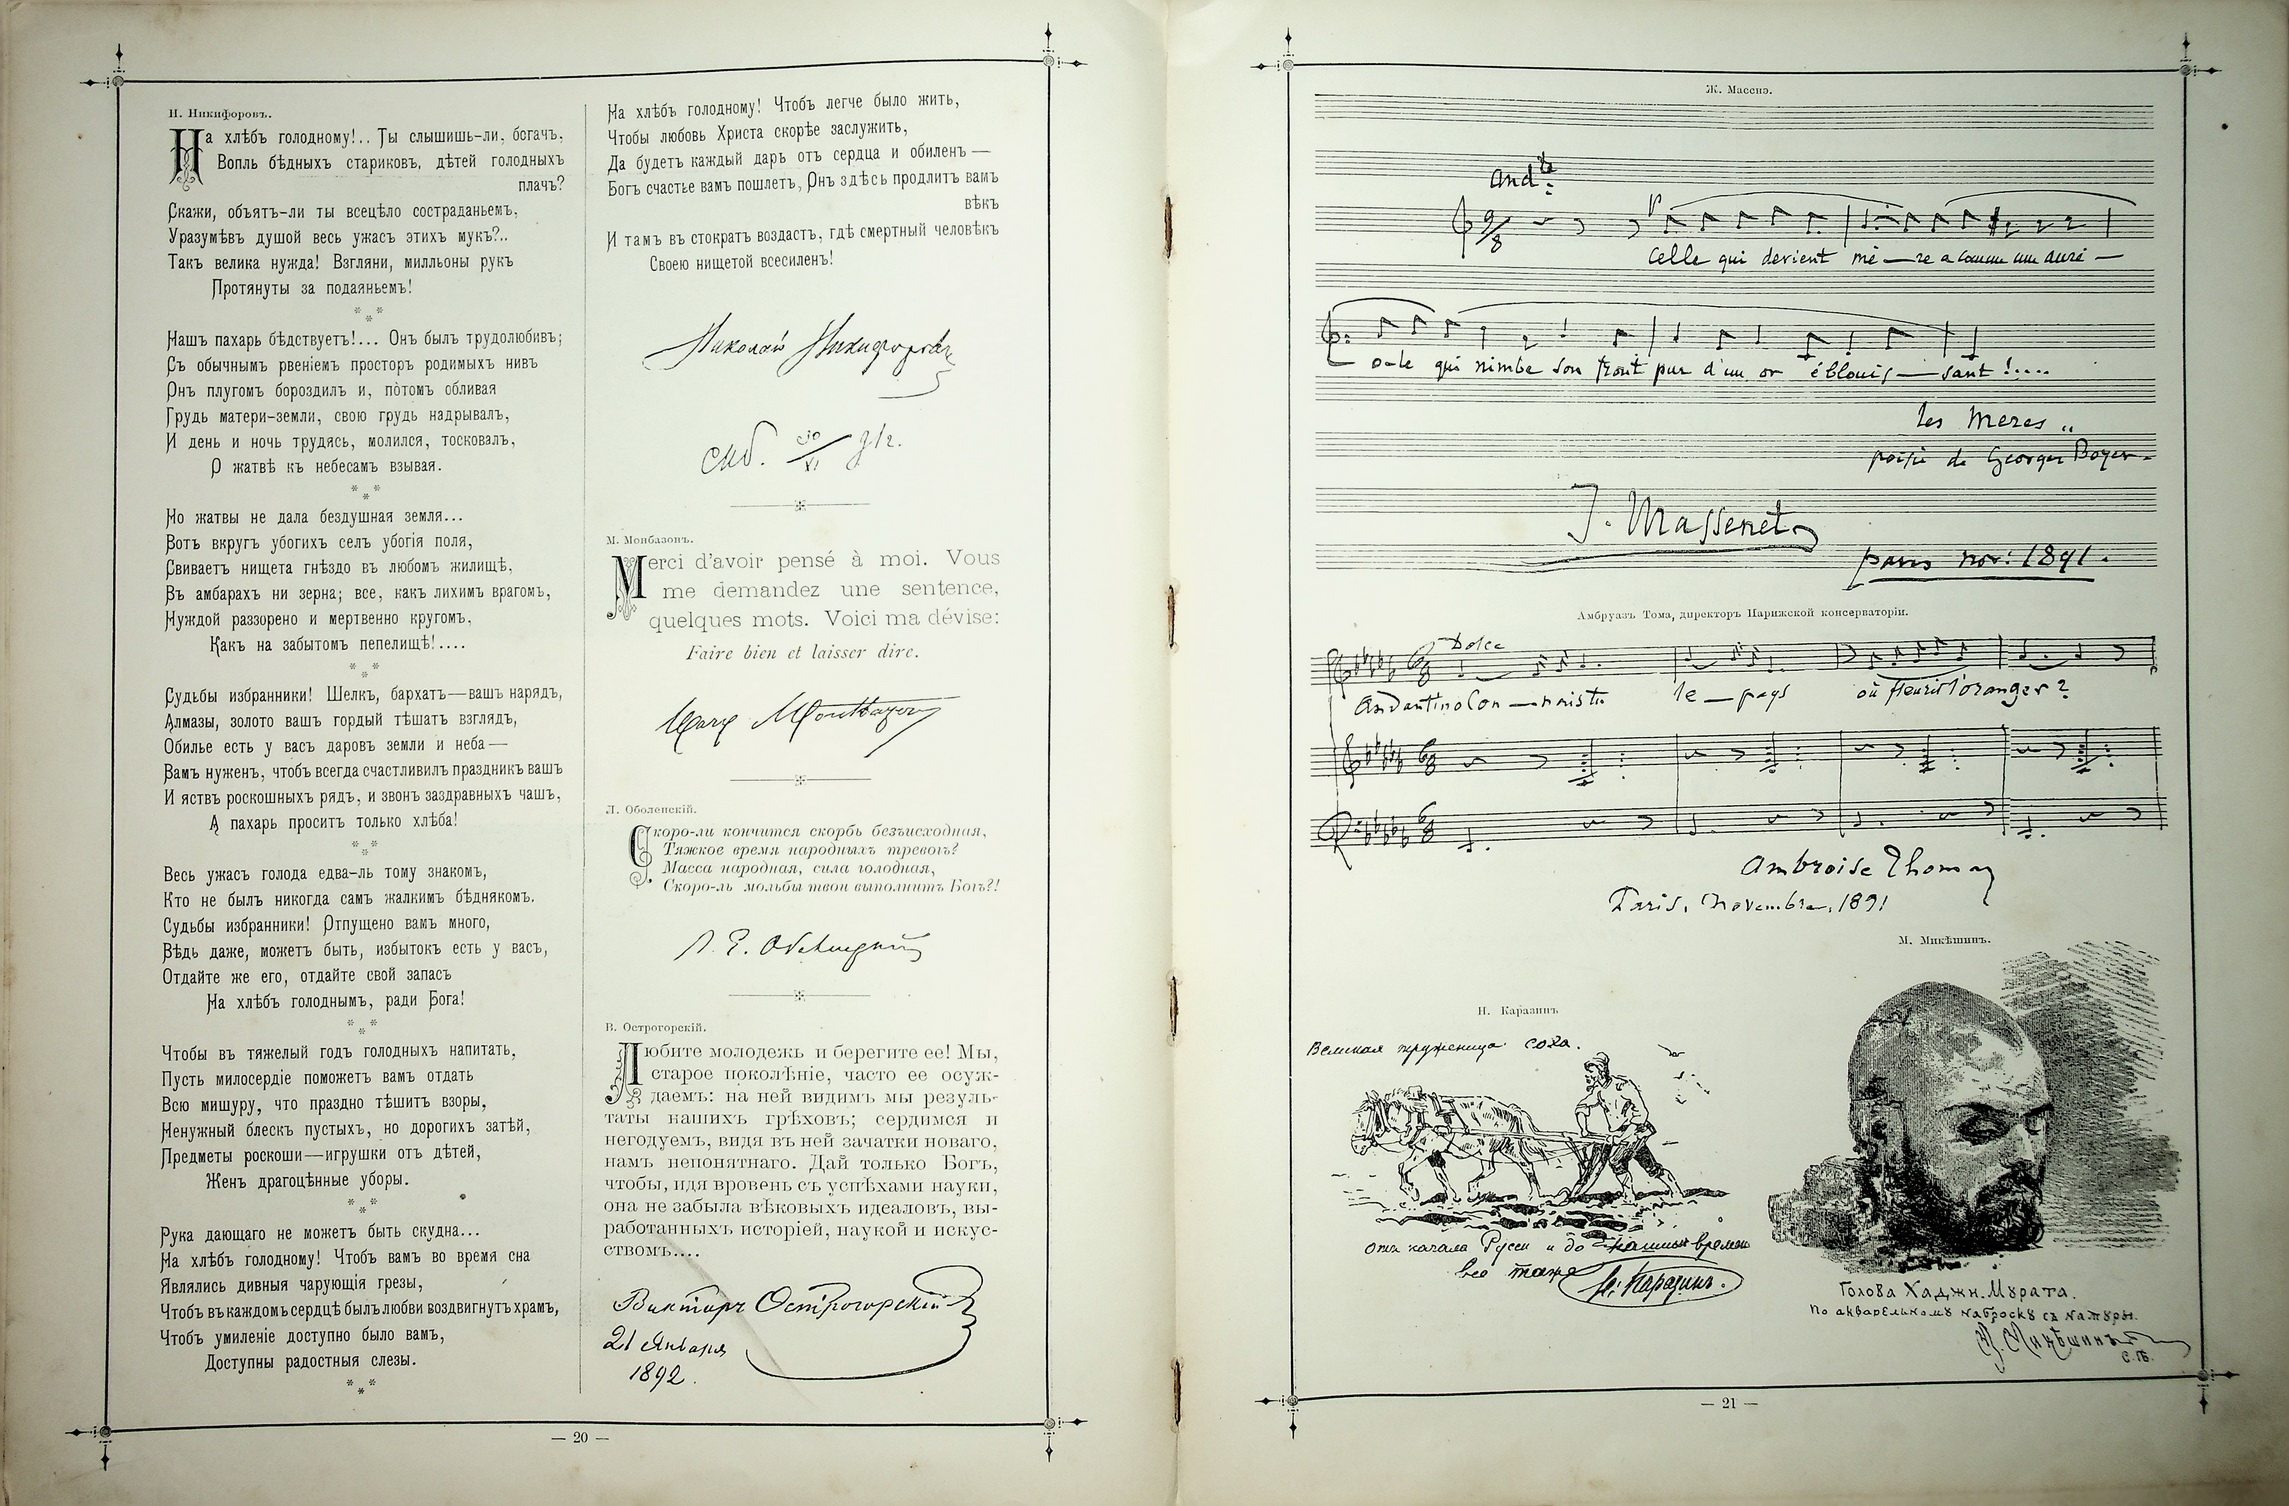 Н. Никифоровъ.
На хлѣбъ голодному!.. Ты слышишь-ли, богачъ,
Вопль бѣдныхъ стариковъ, дѣтей голодныхъ
плачъ?
Скажи, объятъ-ли ты всецѣло состраданьемъ,
Уразумѣвъ душой весь ужасъ этихъ мукъ?..
Такъ велика нужда! Взгляни, милльоны рукъ
Протянуты за подаяньемъ!
* * *
Нашъ пахарь бѣдствуетъ!... Онъ былъ трудолюбивъ;
Съ обычнымъ рвеніемъ просторъ родимыхъ нивъ
Онъ плугомъ бороздилъ и, пòтомъ обливая
Грудь матери-земли, свою грудь надрывалъ,
И день и ночь трудясь, молился, тосковалъ,
О жатвѣ къ небесамъ взывая.
* * *
Но жатвы не дала бездушная земля...
Вотъ вкругъ убогихъ селъ убогія поля,
Свиваетъ нищета гнѣздо въ любомъ жилищѣ,
Въ амбарахъ ни зерна; все, какъ лихимъ врагомъ,
Нуждой раззорено и мертвенно кругомъ,
Какъ на забытомъ пепелищѣ!....
* * *
Судьбы избранники! Шелкъ, бархатъ—вашъ нарядъ,
Алмазы, золото вашъ гордый тѣшатъ взглядъ,
Обилье есть у васъ даровъ земли и неба—
Вамъ нуженъ, чтобъ всегда счастливилъ праздникъ вашъ
И яствъ роскошныхъ рядъ, и звонъ заздравныхъ чашъ,
А пахарь проситъ только хлѣба!
* * *
Весь ужасъ голода едва-ль тому знакомъ,
Кто не былъ никогда самъ жалкимъ бѣднякомъ.
Судьбы избранники! Отпущено вамъ много,
Вѣдь даже, можетъ быть, избытокъ есть у васъ,
Отдайте же его, отдайте свой запасъ
На хлѣбъ голоднымъ, ради Бога!
* * *
Чтобы въ тяжелый годъ голодныхъ напитать,
Пусть милосердіе поможетъ вамъ отдать
Всю мишуру, что праздно тѣшитъ взоры,
Ненужный блескъ пустыхъ, но дорогихъ затѣй,
Предметы роскоши—игрушки отъ дѣтей,
Женъ драгоцѣнные уборы.
* * *
Рука дающаго не можетъ быть скудна...
На хлѣбъ голодному! Чтобъ вамъ во время сна
Являлись дивныя чарующія грезы,
Чтобъ въ каждомъ сердцѣ былъ любви воздвигнутъ храмъ,
Чтобъ умиленіе доступно было вамъ,
Доступны радостныя слезы.
* * *
— 20 —
На хлѣбъ голодному! Чтобъ легче было жить,
Чтобы любовь Христа скорѣе заслужить,
Да будетъ каждый даръ отъ сердца и обиленъ—
Богъ счастье вамъ пошлетъ, Онъ здѣсь продлитъ вамъ
вѣкъ
И тамъ въ стократъ воздастъ, гдѣ смертный человѣкъ
Своею нищетой всесиленъ!
Николай Никифоровъ
М. Монбазонъ.
Merci d'avoir pensé à moi. Vous
me demandez une sentence,
quelques mots. Voici ma dévise:
Faire bien et laisser dire.
Mary Montbazon
Л. Оболенскій.
Скоро-ли кончится скорбь безъисходная,
Тяжкое время народныхъ тревогъ?
Масса народная, сила голодная,
Скоро-ль мольбы твои выполнитъ Богъ?!
Л. Е. Оболенский
В. Острогорскій.
Любите молодежь и берегите ее! Мы,
старое поколѣніе, часто ее осуж-
даемъ: на ней видимъ мы резуль-
таты нашихъ грѣховъ; сердимся и
негодуемъ, видя въ ней зачатки новаго,
намъ непонятнаго. Дай только Богъ,
чтобы, идя вровень съ успѣхами науки,
она не забыла вѣковыхъ идеаловъ, вы-
работанныхъ исторіей, наукой и искус-
ствомъ....
Викторъ Острогорскій
21 Января
1892.
Ж. Массиэ.
And.te
9/8
Celle qui devient mè—re a comme une auré—
o-le qui nimbe son front pur d'un or éblouis—sant!....
Les Mères
poésie de Georges Boyer
J. Massenet
Paris nov: 1891.
Амбруазъ Тома, директоръ Парижской консерваторіи.
Dolce
Andantino Con—nais-tu le—pays où fleurit l'oranger?
Ambroise Thomas
Paris, Novembre, 1891
Н. Каразинъ
Великая труженица соха.
отъ начала Русси и до нашихъ времен
все таже
Н. Каразинъ.
М. Микѣшинъ.
Голова Хаджи-Мурата.
По акварельному наброску съ натуры.
М. Микѣшинъ
— 21 —